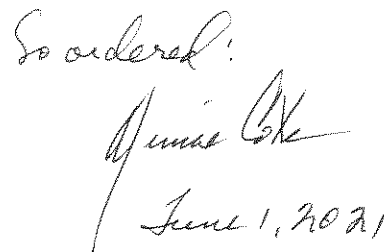 So ordered:
Denise Cote
June 1, 2021